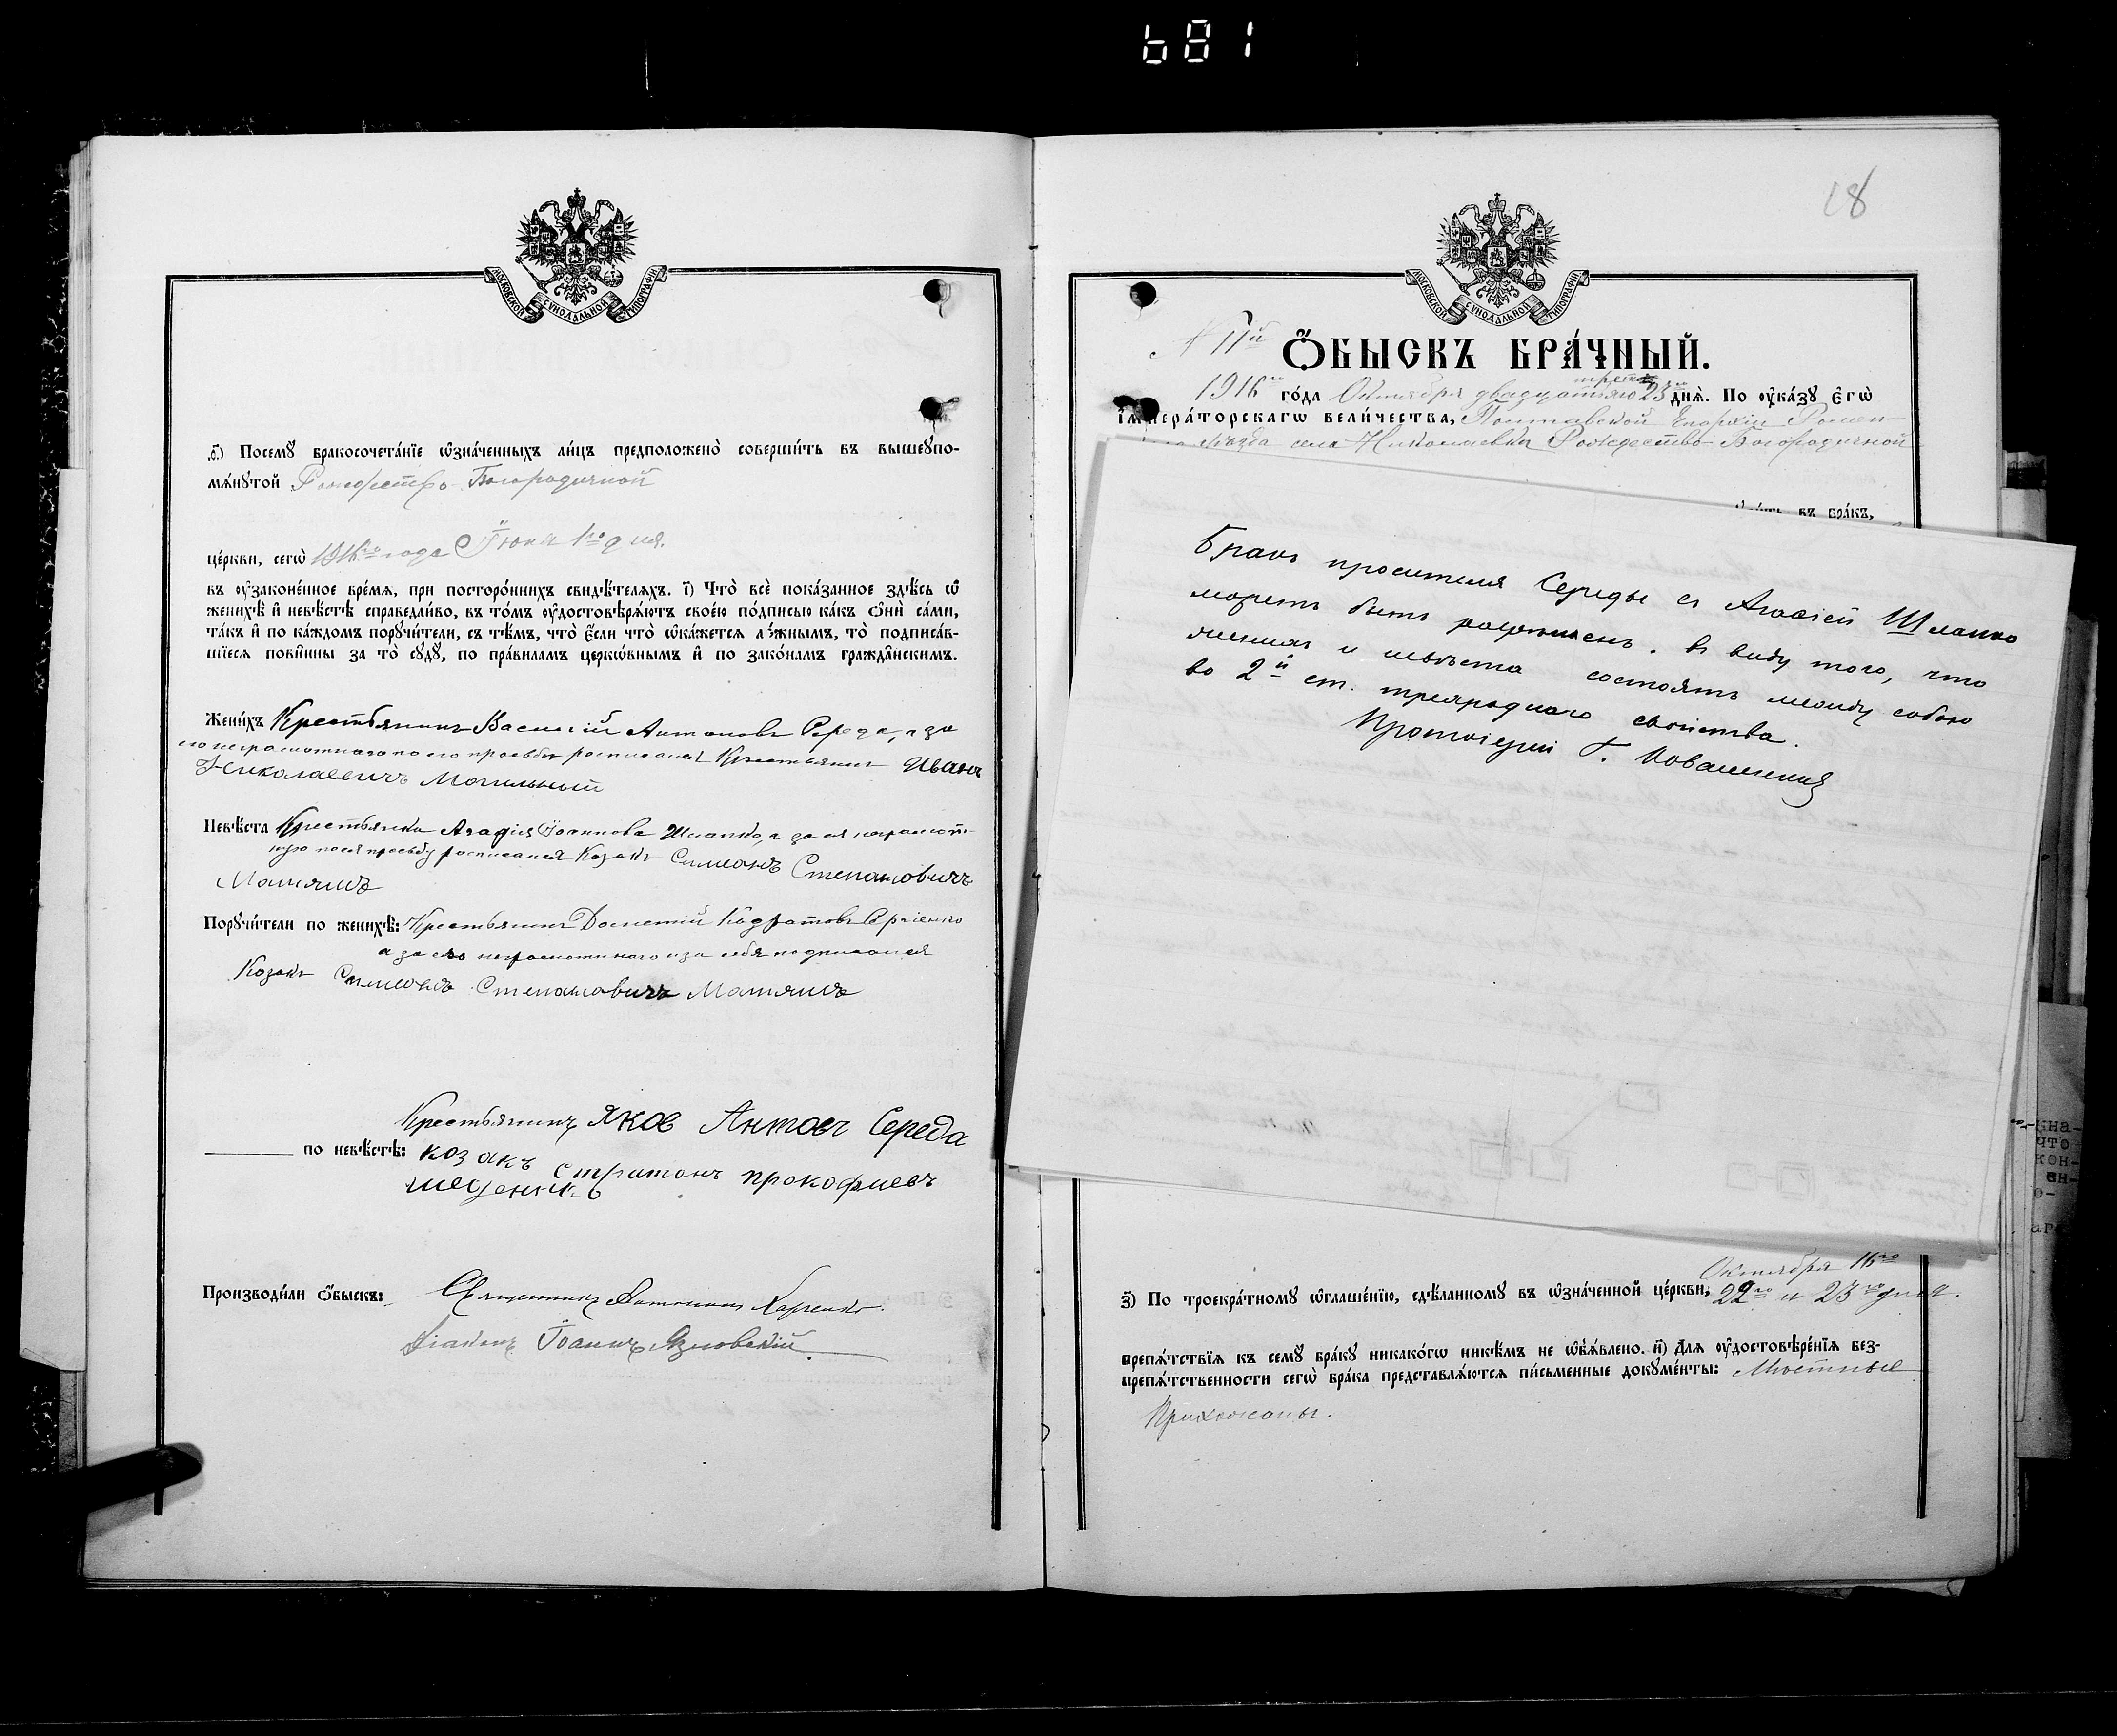 681
МОСКОВСКОЙ СѴНОДАЛЬНОЙ ТИПОГРАФІИ
ѳ҃) Посемꙋ бракосочета́нїе ѡзна́ченныхъ ли́цъ предположено̀ соверши́ть въ вышеꙋпо-
мѧ́нꙋтой Рождество-Богородичной
це́ркви, сегѡ̀ 1916го года Іюня 1го дня.
въ ᲂу҆законе́нное вре́мѧ, при посторо́ннихъ свидѣ́телѧхъ. і҃) Что̀ всѐ пока́занное здѣ́сь ѡ҆
женихѣ̀ и҆ невѣ́стѣ справедли́во, въ то́мъ ᲂу҆достовѣрѧ́ютъ свое́ю по́дписью ка́къ ѻ҆нѝ са́ми,
та́къ и҆ по ка́ждомъ порꙋчи́тели, съ тѣ́мъ, что̀ є҆́сли что̀ ѡ҆ка́жетсѧ ло́жнымъ, то̀ подписа́в-
шїесѧ пови́нны за то̀ сꙋдꙋ̀, по пра́виламъ церко́внымъ и҆ по зако́намъ гражда́нскимъ.
Жени́хъ Крестьянинъ Василій Антоновъ Середа, а за
его неграмотнаго по его просьбѣ росписался Крестьянинъ Иванъ
Николаевичъ Могильный
Невѣ́ста Крестьянка Агафія Іоаннова Шлапко, а за ея неграмот-
ную по ея просьбѣ росписался Козакъ Симеонъ Степановичъ
Матяшъ
Порꙋчи́тели по женихѣ̀: Крестьянинъ Дометій Кодратовъ Сергіенко
а за его неграмотнаго и за себя подписался
Козакъ Симеонъ Степановичъ Матяшъ
Крестьянинъ Яков Антовъ Середа
по невѣ́стѣ: козакъ Стратонъ прокофиевъ
Производи́ли ѻ҆́быскъ: Священникъ Антоній Харченко.
Діаконъ Іоаннъ Язловскій
18
МОСКОВСКОЙ СѴНОДАЛЬНОЙ ТИПОГРАФІИ
№ 17й
Ѻ҆́БЫСКЪ БРА́ЧНЫЙ.
трет
1916го го́да Октября двадцатаго 23го днѧ̀. По ᲂу҆ка́зꙋ є҆гѡ̀
і҆мпера́торскагѡ вели́чества, Полтавской Епархіи Ромен-
уѣзда села Николаевки Рождество-Богородичной
въ бра́къ,
Бракъ просителя Середы съ Агафіей Шлапко
можетъ быть разрѣшенъ. въ виду того, что
женихъ и невѣста состоятъ между собою
во 2й ст. трехроднаго свойства.
Протоіерей Г. Ковалевскій
Октября 16го
з҃) По троекра́тномꙋ ѡ҆глаше́нїю, сдѣ́ланномꙋ въ ѡ҆зна́ченной це́ркви, 22го и 23го дня.
препѧ́тствїѧ къ семꙋ̀ бра́кꙋ никако́гѡ никѣ́мъ не ѡ҆б̾ѧ́влено. и҃) Длѧ ᲂу҆достовѣре́нїѧ без-
препѧ́тственности сегѡ̀ бра́ка представлѧ́ютсѧ пи́сьменные докꙋме́нты: Мѣстные
Прихожаны.
кна-
что
кон-
ен-
о-